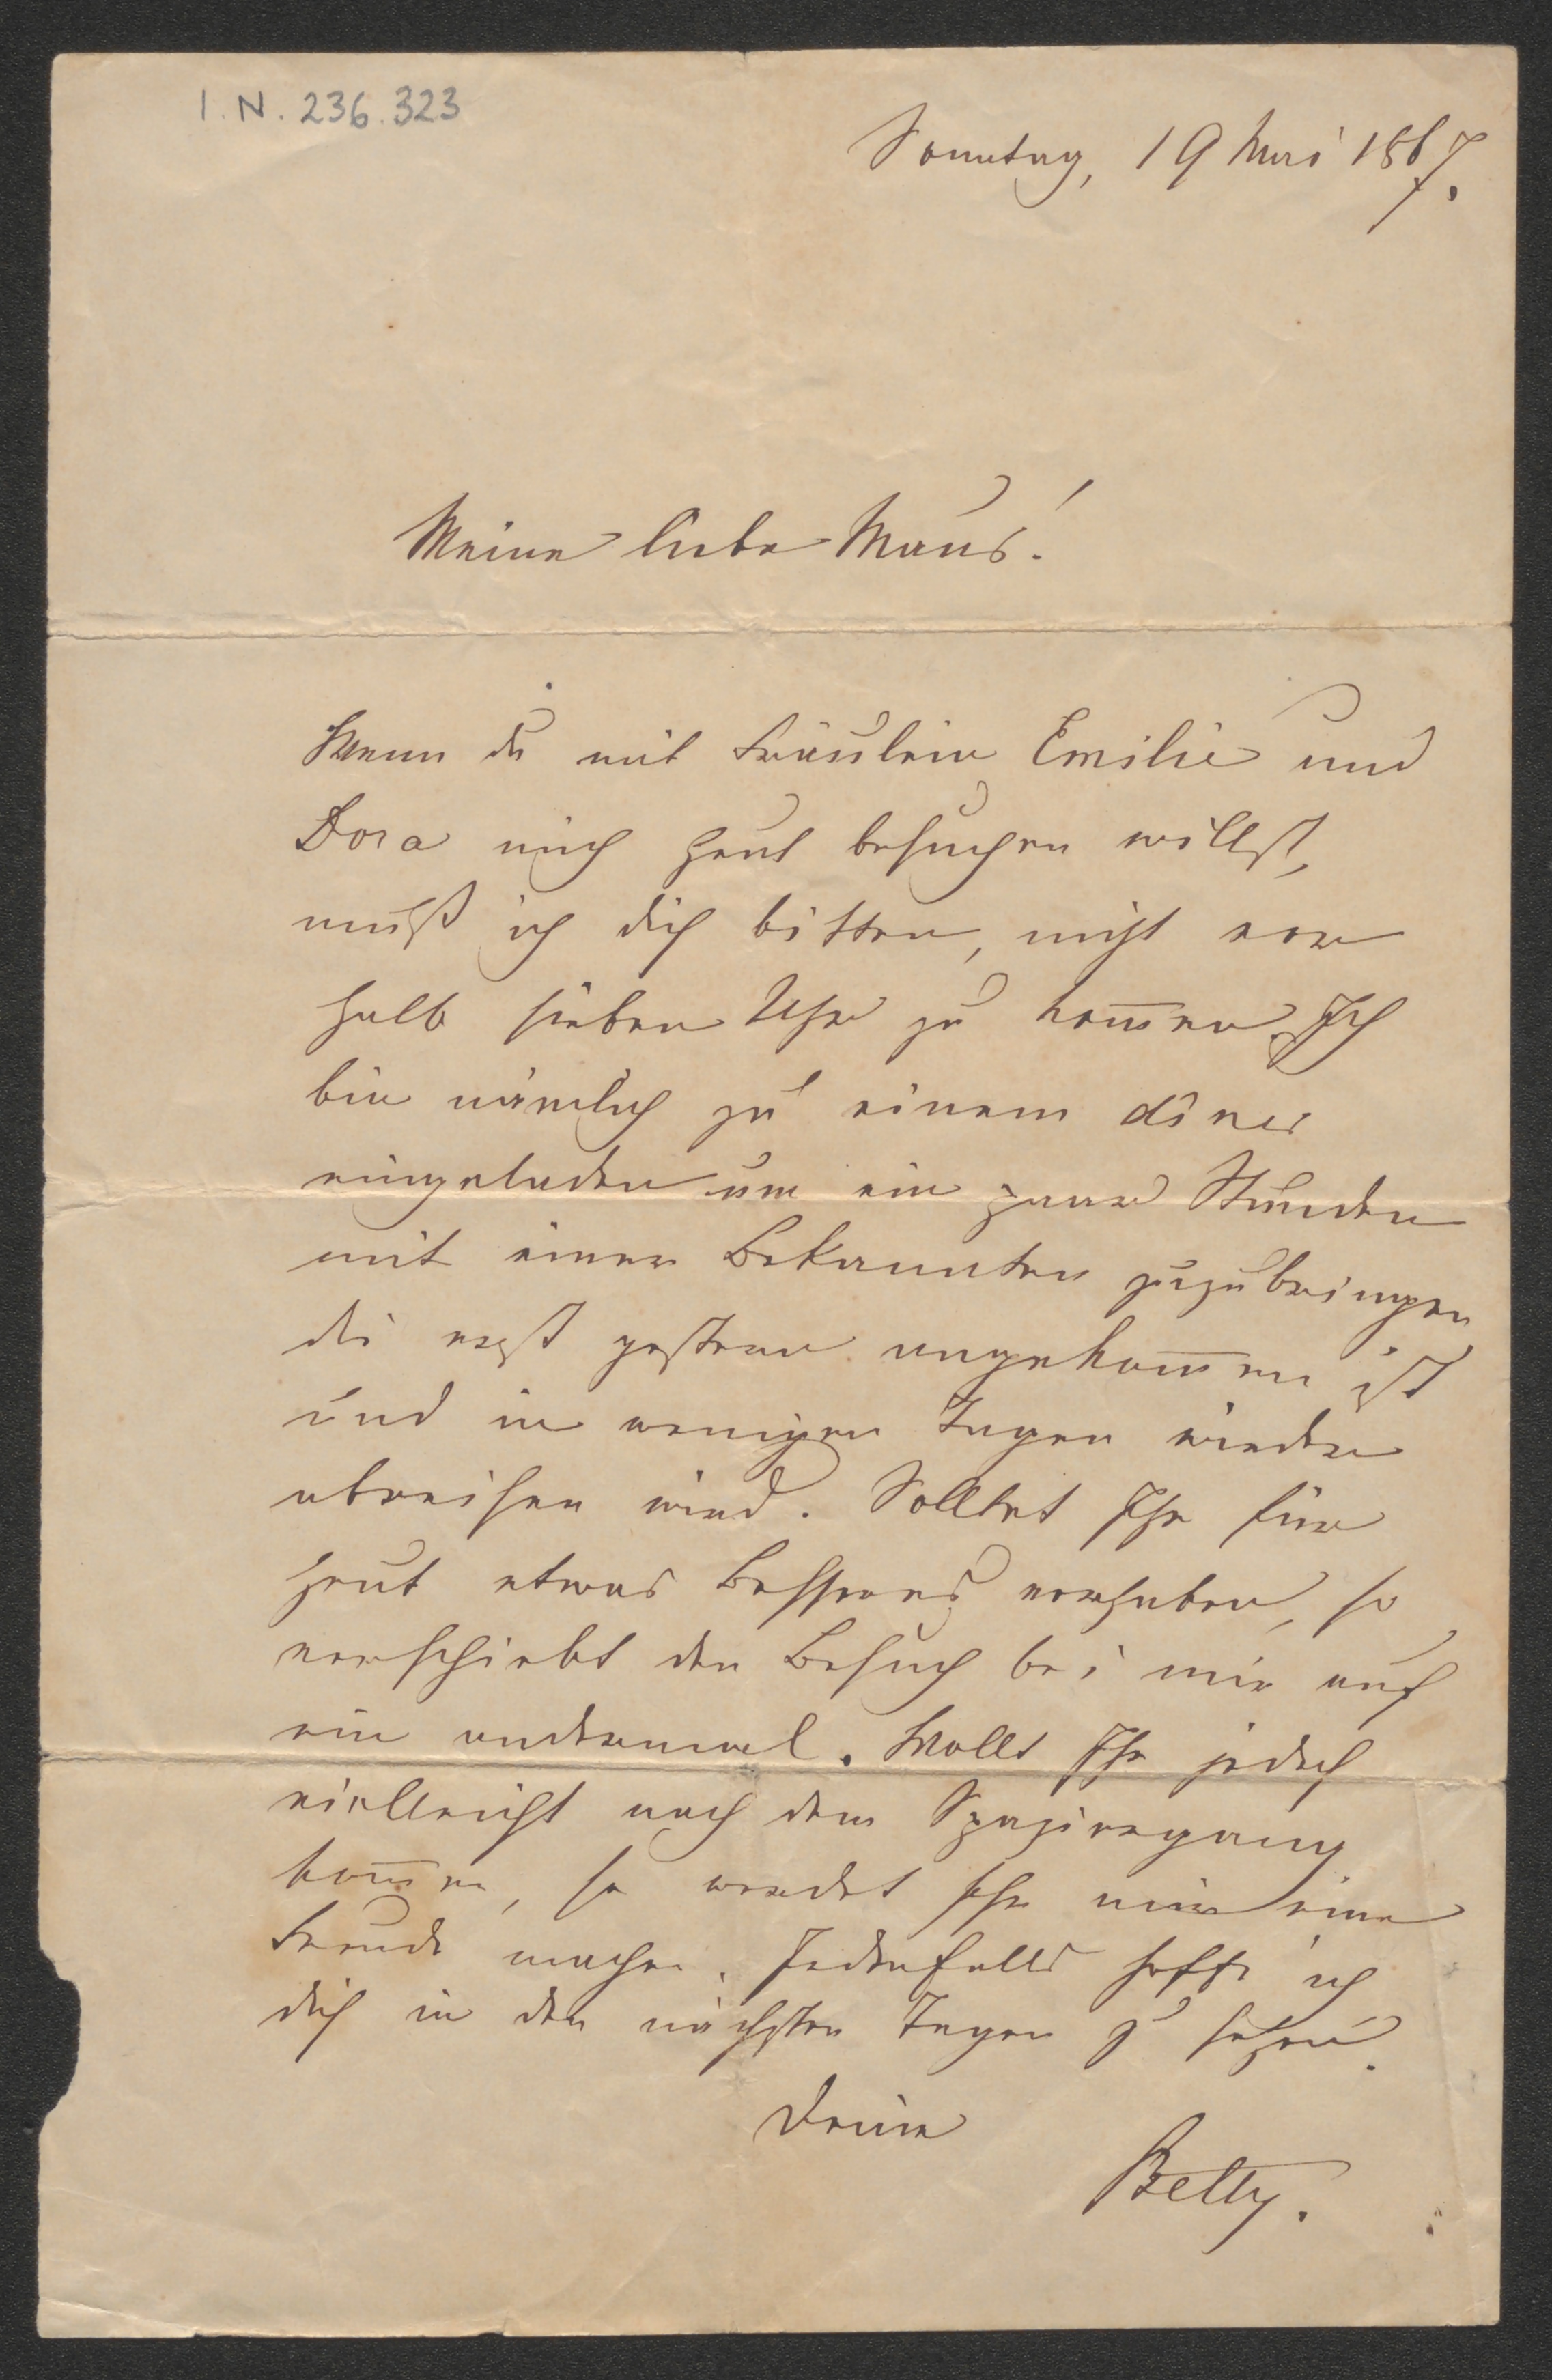 I.N. 236.323
Sonntag, 19 Mai 1867.
Meine liebe Maus!
Wenn du mit Fräulein Emilie und
Dora mich heut besuchen willst,
muß ich dich bitten, nicht vor
halb sieben Uhr zu kom̅en. Ich
bin nämlich zu einem diner
eingeladen um ein paar Stunden
mit einer Bekannten zuzubringen
die erst gestern angekom̅en ist
und in wenigen Tagen wieder
abreisen wird. Solltet Ihr für
heut etwas Besseres vorhaben, so
verschiebt den Besuch bei mir auf
ein andermal. Wollt Ihr jedoch
vielleicht nach dem Spaziergang
kom̅en, so werdet Ihr mir eine
Freude machen. Jedenfalls hoffe ich
dich in den nächsten Tagen zu sehen.
Deine
Betty.